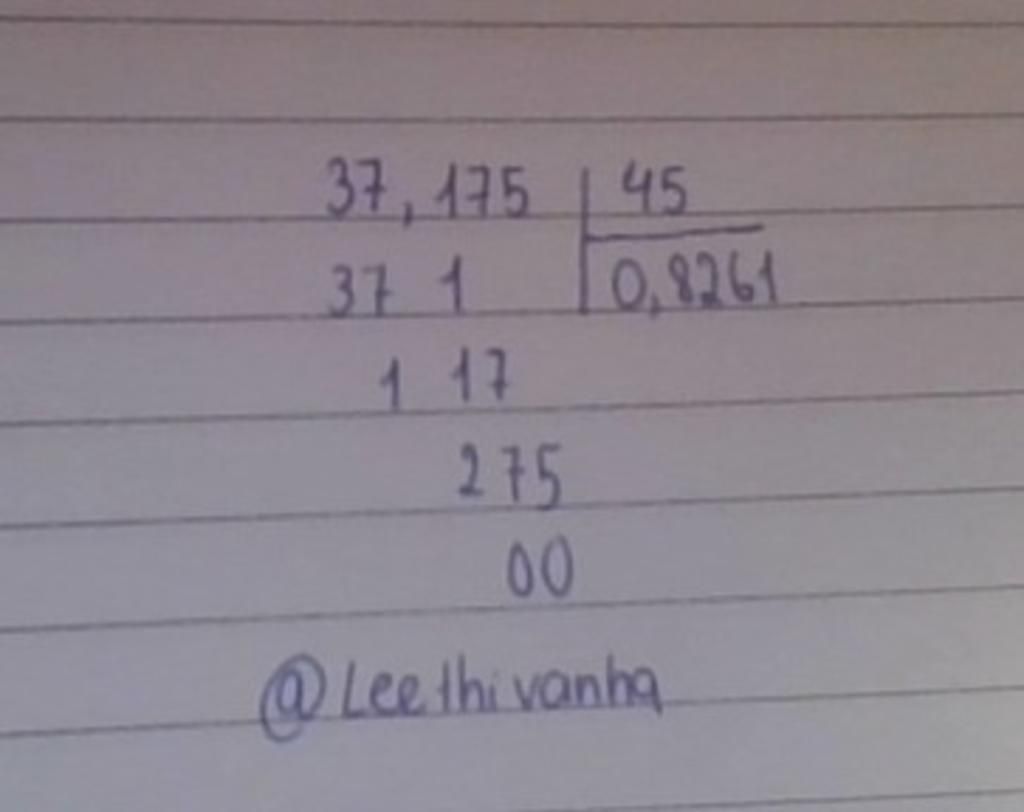 37,175 45
37 1 0,8261
1 17
275
00
@Leethivanha